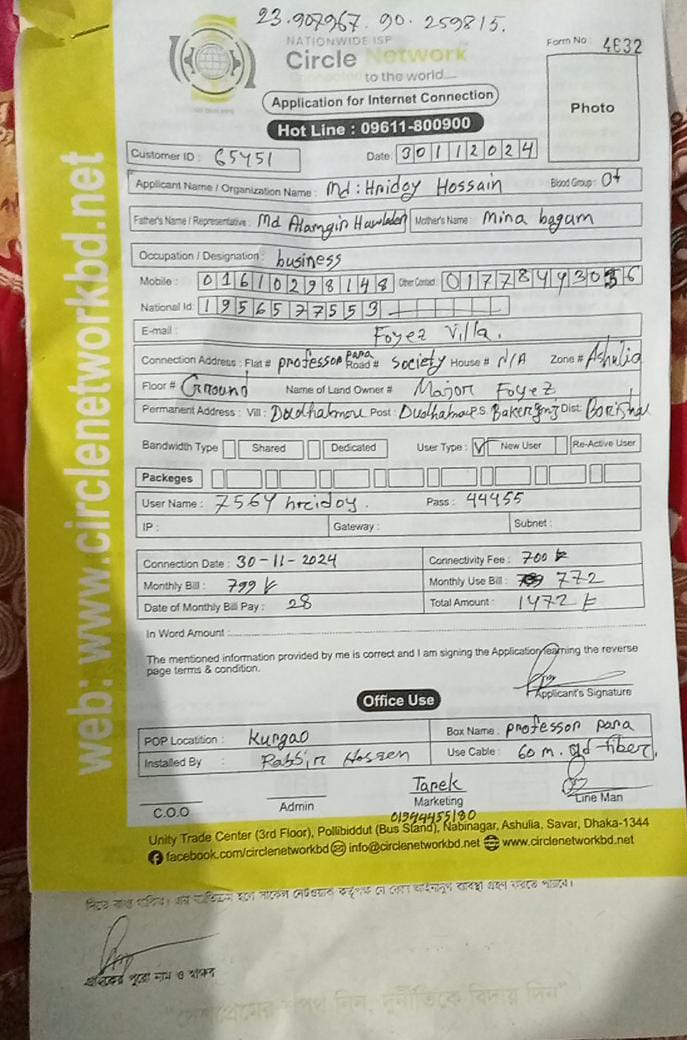 23.907967. 90. 259815.
NATIONWIDE ISP
Circle Network
Connected to the world....
Form No : 4632
Application for Internet Connection
Photo
Hot Line : 09611-800900
Customer ID : 65451 Date: 30112024
Applicant Name / Organization Name : Md : Hridoy Hossain Blood Group : O+
Father's Name / Representative : Md Alamgir Hawlader Mother's Name : Mina bagum
Occupation / Designation : business
Mobile : 01610298148 Other Contact :
National Id: 1956577553
E-mail :
Foyez Villa.
Connection Address : Flat # professor para Road # Society House # N/A Zone # Ashulia
Floor # Ground Name of Land Owner # Major Foyez
Permanent Address : Vill : Post : P.S. Dist: Borishal
Bandwidth Type Shared Dedicated User Type : V New User Re-Active User
Packeges
User Name : 7564 hridoy. Pass : 44455
IP : Gateway : Subnet :
Connection Date : 30-11-2024 Connectivity Fee : 700
Monthly Bill : 799 Monthly Use Bill : 772
Date of Monthly Bill Pay : 28 Total Amount : 1472
In Word Amount :
The mentioned information provided by me is correct and I am signing the Application learning the reverse
page terms & condition.
Applicant's Signature
Office Use
POP Locatition : Kurgao Box Name : professor para
Installed By : Rabbir Hossen Use Cable : 60 m. old fiber.
Tarek
C.O.O Admin Marketing Line Man
01944455180
Unity Trade Center (3rd Floor), Pollibiddut (Bus Stand), Nabinagar, Ashulia, Savar, Dhaka-1344
facebook.com/circlenetworkbd info@circlenetworkbd.net www.circlenetworkbd.net
web: www.circlenetworkbd.net
গ্রাহকের পুরো নাম ও স্বাক্ষর
"দেশপ্রেমের শপথ নিন, দুর্নীতিকে বিদায় দিন"